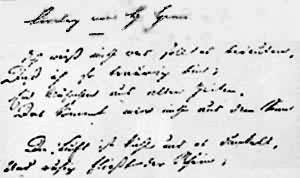 von H Heine
Ich weiß nicht was soll es bedeuten,
Daß ich so traurig bin;
Ein Mährchen aus alten Zeiten,
Das kommt mir nicht aus dem Sinn
Die Luft ist kühl und es dunkelt,
Und ruhig fließt der Rhein;